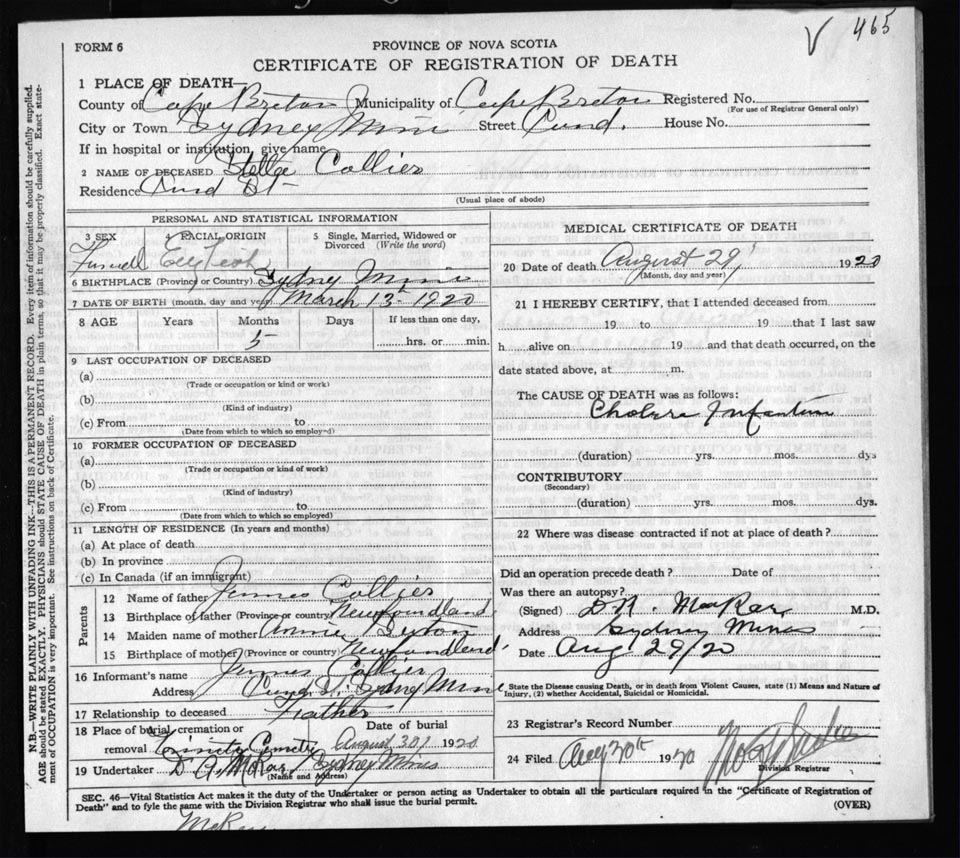 465
FORM 6
PROVINCE OF NOVA SCOTIA
CERTIFICATE OF REGISTRATION OF DEATH
1 PLACE OF DEATH—
County of Cape Breton Municipality of Cape Breton Registered No.
(For use of Registrar General only)
City or Town Sydney Mines Street House No.
If in hospital or institution, give name
2 NAME OF DECEASED Stella Collier
Residence St
(Usual place of abode)
PERSONAL AND STATISTICAL INFORMATION
3 SEX 4 RACIAL ORIGIN 5 Single, Married, Widowed or Divorced (Write the word)
6 BIRTHPLACE (Province or Country) Sydney Mines
7 DATE OF BIRTH (month, day and year) March 13th 1920
8 AGE Years Months Days If less than one day,
5 hrs. or min.
9 LAST OCCUPATION OF DECEASED
(a)
(Trade or occupation or kind or work)
(b)
(Kind of industry)
(c) From to
(Date from which to which so employed)
10 FORMER OCCUPATION OF DECEASED
(a)
(Trade or occupation or kind of work)
(b)
(Kind of industry)
(c) From to
(Date from which to which so employed)
11 LENGTH OF RESIDENCE (In years and months)
(a) At place of death
(b) In province
(c) In Canada (if an immigrant)
Parents
12 Name of father James Collier
13 Birthplace of father (Province or country) Newfoundland
14 Maiden name of mother Annie
15 Birthplace of mother (Province or country) Newfoundland
16 Informant's name James Collier
Address St. Sydney Mines
17 Relationship to deceased Father
18 Place of burial, cremation or removal Trinity Cemetery Date of burial August 30 1920
19 Undertaker Sydney Mines
(Name and Address)
MEDICAL CERTIFICATE OF DEATH
20 Date of death August 29, 1920
(Month, day and year)
21 I HEREBY CERTIFY, that I attended deceased from
19 to 19 that I last saw
h alive on 19 and that death occurred, on the
date stated above, at m.
The CAUSE OF DEATH was as follows:
Cholera Infantum
(duration) yrs. mos. dys
CONTRIBUTORY
(Secondary)
(duration) yrs. mos. dys.
22 Where was disease contracted if not at place of death?
Did an operation precede death? Date of
Was there an autopsy?
(Signed) M.D.
Address Sydney Mines
Date Aug 29/20
State the Disease causing Death, or in death from Violent Causes, state (1) Means and Nature of
Injury, (2) whether Accidental, Suicidal or Homicidal.
23 Registrar's Record Number
24 Filed Aug 30th 1920
Division Registrar
SEC. 46—Vital Statistics Act makes it the duty of the Undertaker or person acting as Undertaker to obtain all the particulars required in the "Certificate of Registration of
Death" and to fyle the same with the Division Registrar who shall issue the burial permit.
(OVER)
N.B.—WRITE PLAINLY WITH UNFADING INK—THIS IS A PERMANENT RECORD. Every item of information should be carefully supplied.
AGE should be stated EXACTLY. PHYSICIANS should STATE CAUSE OF DEATH in plain terms, so that it may be properly classified. Exact state-
ment of OCCUPATION is very important. See instructions on back of Certificate.